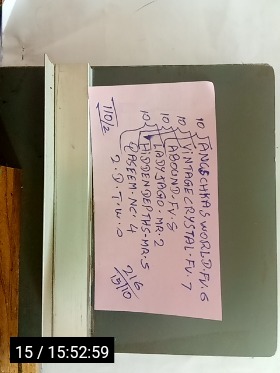 10 { ANUSHKAS WORLD.FV.6
10 { VINTAGE CRYSTAL.FV.7
10 { ABOUND.FV.8
10 { LADY JAGO.MR.2
10 { HIDDEN DEPTHS-MR.5
QASEEM.NC.4
2.D.T.W.O
T/0/2
2/6
15/10
15 / 15:52:59